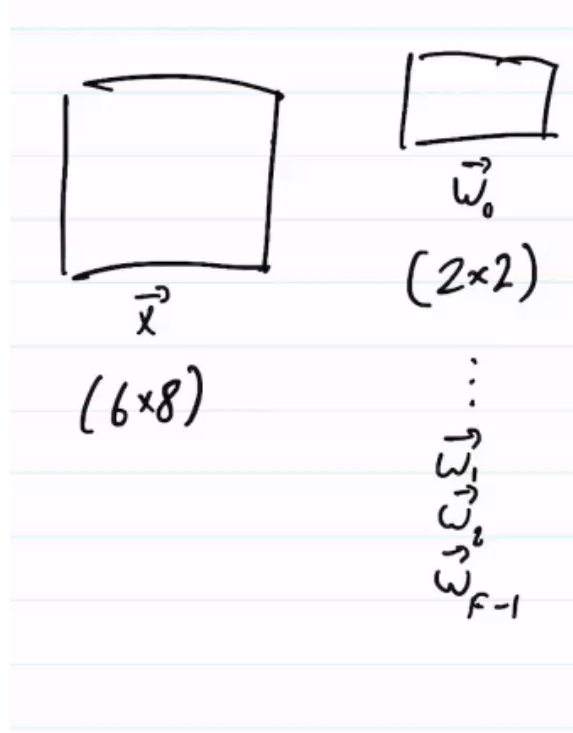 x⃗
(6×8)
w⃗₀
(2×2)
⋮
w⃗₁
w⃗₂
w⃗F-1